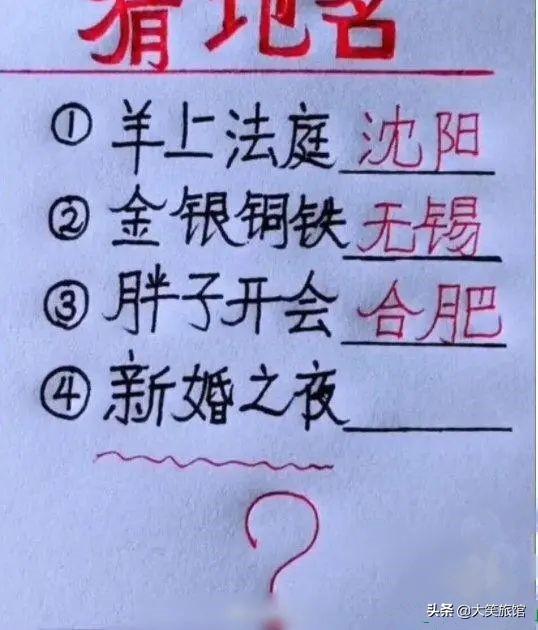 猜地名
①羊上法庭 沈阳
②金银铜铁 无锡
③胖子开会 合肥
④新婚之夜
?
头条 @大笑旅馆